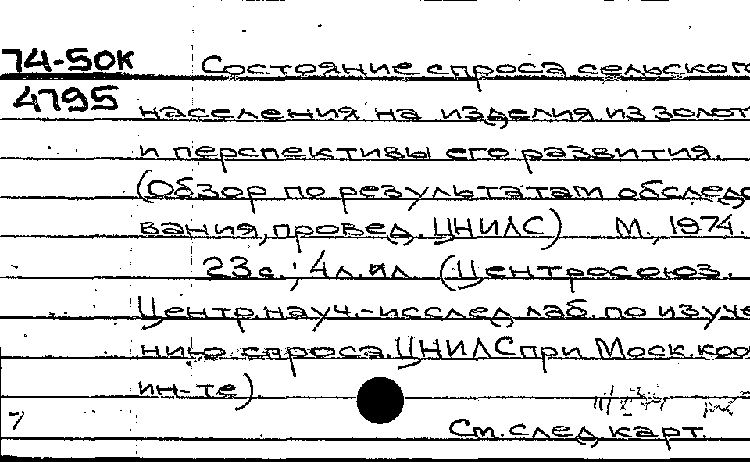 74-50к Состояние спроса сельского
4795 населения на изделия из золот
и перспективы его развития.
(Обзор по результатам обследо
вания, провед. ЦНИЛС) М., 1974.
23 с.; 4 л. ил. (Центросоюз.
Центр. науч.-исслед. лаб. по изуче
нию спроса. ЦНИЛС при Моск. кооп
ин-те).
7
См. след. карт.